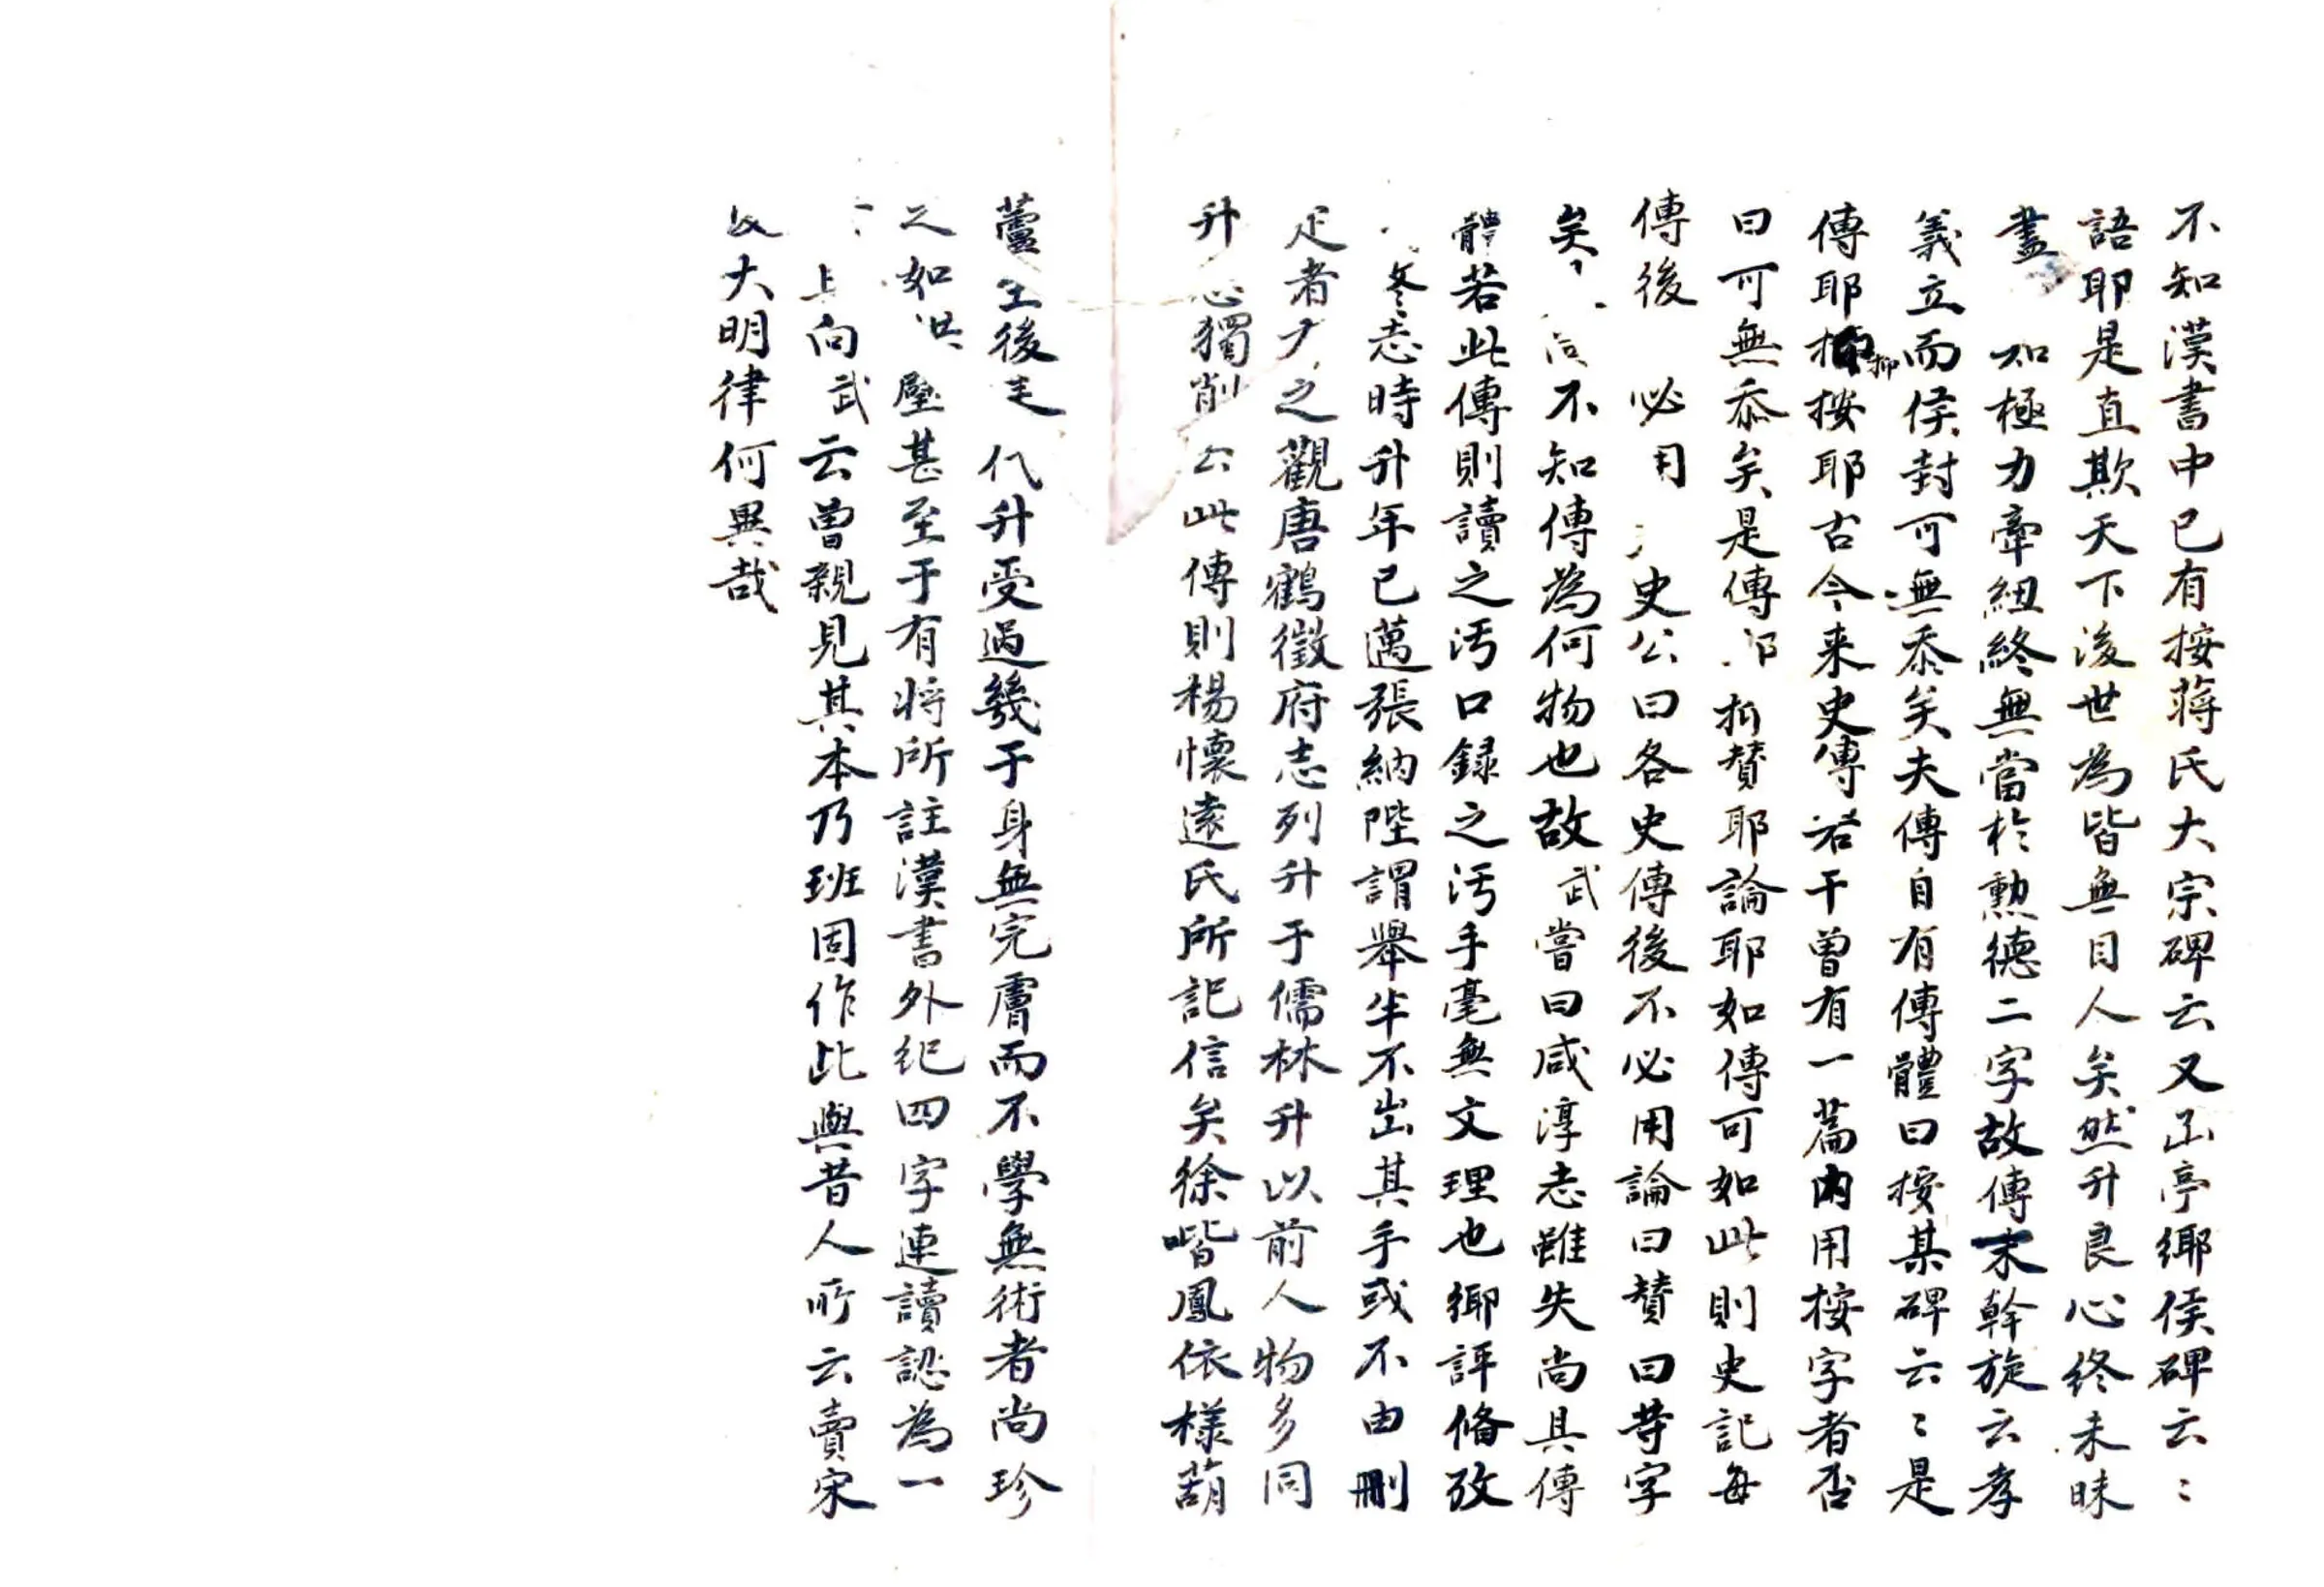 不知漢書中已有按蔣氏大宗碑云又凾亭鄉侯碑云〻
語耶是直欺天下後世為皆無目人矣然升良心終未昧
盡 如極力牽紐終無當於勲德二字故傳末幹旋云孝
義立而侯封可無忝矣夫傳自有傳體曰按某碑云〻是
傳耶抑按耶古今来史傳若干曾有一篇内用按字者否
曰可無忝矣是傳耶 抑賛耶論耶如傳可如此則史記每
傳後 必用 史公曰各史傳後不必用論曰賛曰等字
矣 不知傳為何物也故武嘗曰咸淳志雖失尚具傳
體若此傳則讀之汚口録之汚手毫無文理也鄉評俻攷
志時升年已邁張納陛謂舉筆不出其手或不由刪
定者 之觀唐鶴徵府志列升于儒林升以前人物多同
升 獨削 公此傳則楊懷遠氏所記信矣徐喈鳳依樣葫
蘆 後 代升受過幾于身無完膚而不學無術者尚珍
之如洪 壁甚至于有将所註漢書外紀四字連讀認為一
向武云曾親見其本乃班固作此與昔人所云賣宋
大明律何異哉